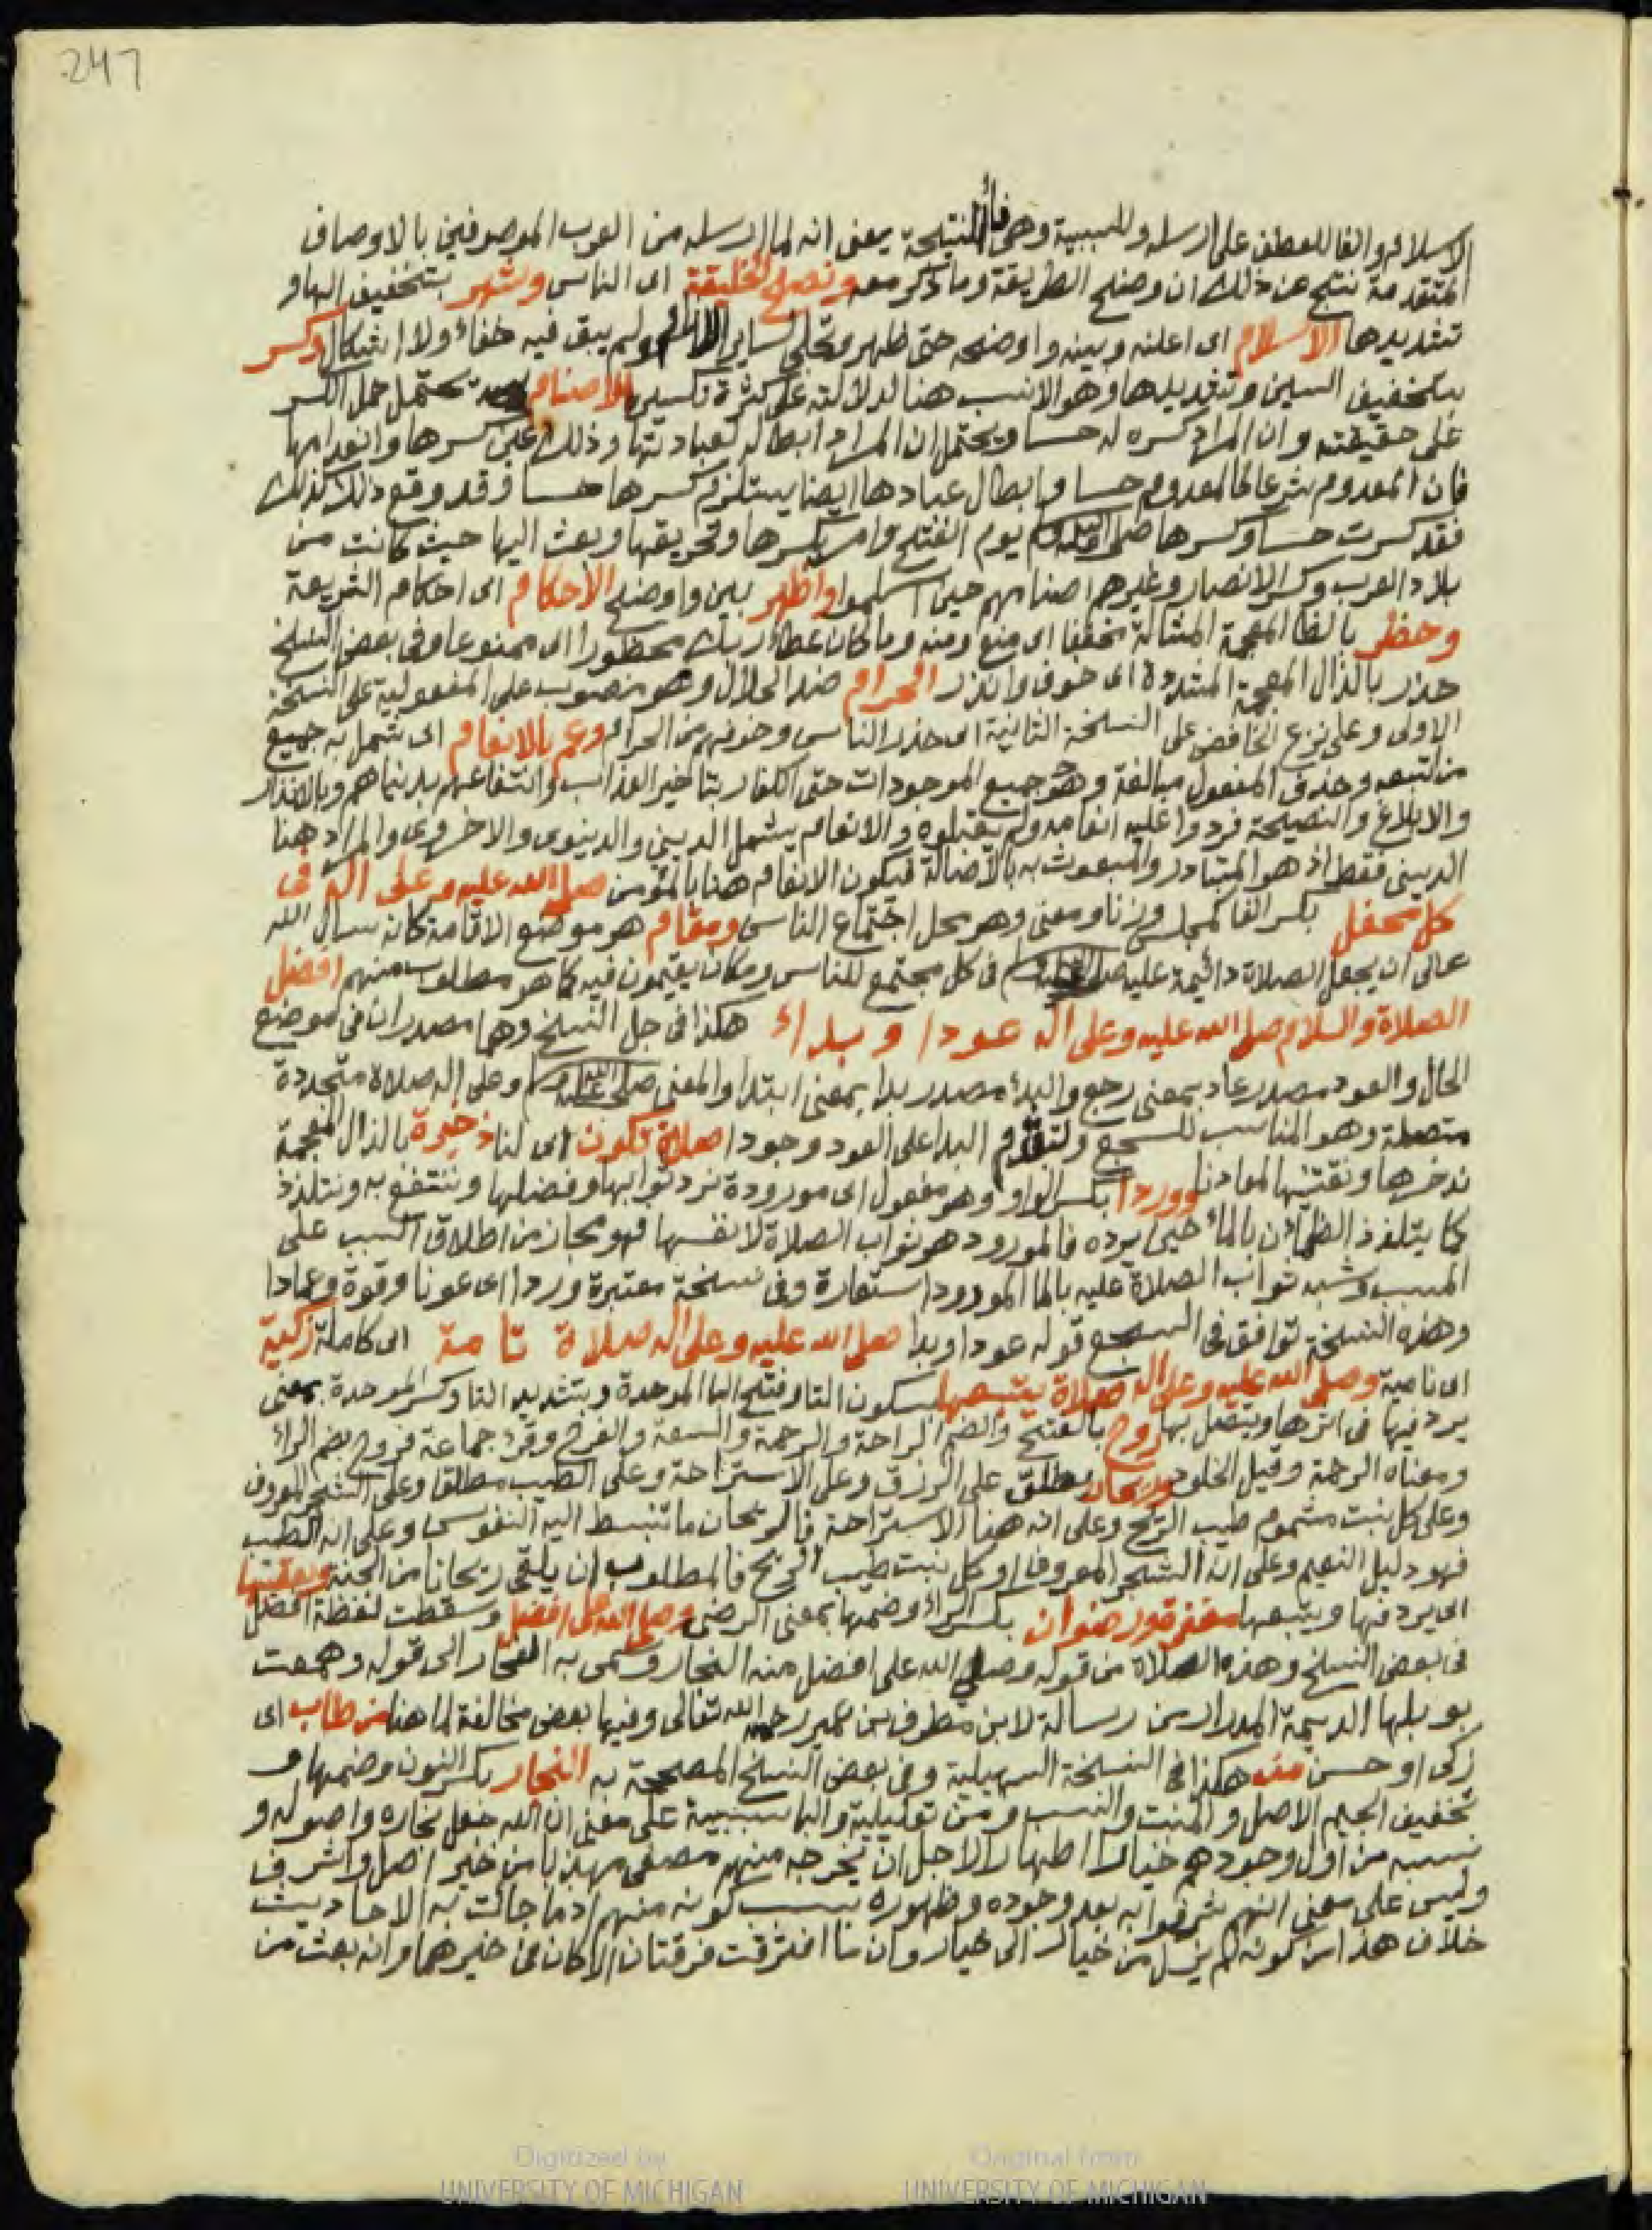 247
الاسلام والفا للعطف على ارسله وللسببية وهى فاء النتيجة يعنى انه لما ارسله من العرب الموصوفين بالاوصاف
المتقدمة نتج عن ذلك ان وضح الطريقة وما ذكر معه ونصح الخليقة اى الناس وشهر بتخفيف الهاو
تشديدها الاسلام اى اعلنه وبينه واوضحه حتى ظهر وتجلى لساير الانام ولم يبق فيه خفاء ولا اشكال وكسر
بتخفيف السين وتشديدها وهو الانسب هنا لدلالته على كثرة تكسير الاصنام يحتمل حمل الكسر
على حقيقته وان المراد كسره له حسا ويحتمل ان المراد ابطاله لعبادتها وذلك عين كسرها وانعدامها
فان المعدوم شرعا كالمعدوم حسا وابطال عبادها ايضا يستلزم كسرها حسا وقد وقع ذلك كذلك
فقد كسرت حسا وكسرها صلى الله عليه وسلم يوم الفتح وامر بكسرها وتحريقها وبعث اليها حيث كانت من
بلاد العرب وكسر الانصار وغيرهم اصنامهم حين اسلموا واظهر بين واوضح الاحكام اى احكام الشريعة
وحظر بالظا المعجمة المشالة مخففا اى منع ومنه وما كان عطاء ربك محظورا اى ممنوعا وفى بعض النسخ
حذر بالذال المعجمة المشددة اى خوف وانذر الحرام ضد الحلال وهو منصوب على المفعولية على النسخة
الاولى وعلى نزع الخافض على النسخة الثانية اى حذر الناس وخوفهم من الحرام وعم بالانعام اى شمل به جميع
من اتبعه وحذف المفعول مبالغة وهو جميع الموجودات حتى الكفار بتاخير العذاب وانتفاعهم بدنياهم وبالانذار
والابلاغ والنصيحة فردوا عليه انعامه ولم يقبلوه والانعام يشمل الدينى والدنيوى والاخروى والمراد هنا
الدينى فقط اذ هو المتبادر والمبعوث به بالاصالة فيكون الانعام هنا بالمؤمن صلى الله عليه وعلى اله فى
كل محفل بكسر الفا كمجلس وزنا ومعنى وهو محل اجتماع الناس ومقام هو موضع الاقامة كانه سال الله
تعالى ان يجعل الصلاة دائمة عليه صلى الله عليه وسلم فى كل مجتمع للناس ومكان يقيمون فيه كما هو مطلوب منهم افضل
الصلاة والسلام صلى الله عليه وعلى اله عودا وبداء هكذا فى جل النسخ وهما مصدران فى موضع
الحال والعود مصدر عاد بمعنى رجع والبدء مصدر بدا بمعنى ابتدا والمعنى صلى الله عليه وسلم وعلى اله صلاة متجددة
متصلة وهو المناسب للسجع ولتقدم البدا على العود وجودا صلاة تكون اى لنا ذخيرة بالذال المعجمة
ندخرها ونقتنيها لمعادنا ووردا بكسر الواو وهو مفعول اى مورودة نرد ثوابها وفضلها وننتفع به ونتلذذ
كما يتلذذ الظمآن بالماء حين يرده فالمورود هو ثواب الصلاة لا نفسها فهو مجاز من اطلاق السبب على
المسبب وشبه ثواب الصلاة عليه بالما المورود استعارة وفى نسخة معتبرة وردا اى عونا وقوة وعمادا
وهذه النسخة توافق فى السجع قوله عودا وبدا صلى الله عليه وعلى اله صلاة تامة اى كاملة زكية
اى نامية وصلى الله عليه وعلى اله صلاة يتبعها بسكون التا وفتح البا الموحدة وبتشديد التا وكسر الموحدة بمعنى
يردفها فى اثرها ويتصل بها روح بالفتح والضم الراحة والرحمة والسعة والفرح وقرء جماعة فروح بضم الراء
ومعناه الرحمة وقيل الخلود وريحان يطلق على الرزق وعلى الاستراحة وعلى الطيب مطلقا وعلى الشجر المعروف
وعلى كل نبت مشموم طيب الريح وعلى انه هنا الاستراحة فالريحان ما تنبسط اليه النفوس وعلى انه الطيب
فهو دليل النعيم وعلى انه الشجر المعروف او كل نبت طيب الريح فالمطلوب ان يلقى ريحانا من الجنة ويعقبها
اى يردفها ويتبعها مغفرة ورضوان بكسر الراء وضمها بمعنى الرضى وصلى الله على افضل وسقطت لفظة افضل
فى بعض النسخ وهذه الصلاة من قوله وصلى الله على افضل منه النجار وسمى به الفخار الى قوله وهمعت
بوبلها الديمة المدرار من رسالة لابن مطرف بن عمير رحمه الله تعالى وفيها بعض مخالفة لما هنا من طاب اى
زكى او حسن منه هكذا فى النسخة السهيلية وفى بعض النسخ المصححة به النجار بكسر النون وضمها و
تخفيف الجيم الاصل والمنبت والنسب ومن تعليلية والبا سببية على معنى ان الله جعل نجاره واصوله و
نسبه من اول وجودهم خيارا اطهارا لاجل ان يخرجه منهم مصفى مهذبا من خير اصل واشرف
وليس على معنى انهم شرفوا به بعد وجوده وظهوره بسبب كونه منهم اذ ما جائت به الاحاديث
خلاف هذا من كونه لم يزل من خيار الى خيار وان ما افترقت فرقتان الا كان فى خيرهما وانه بعث من
Digitized by UNIVERSITY OF MICHIGAN
Original from UNIVERSITY OF MICHIGAN